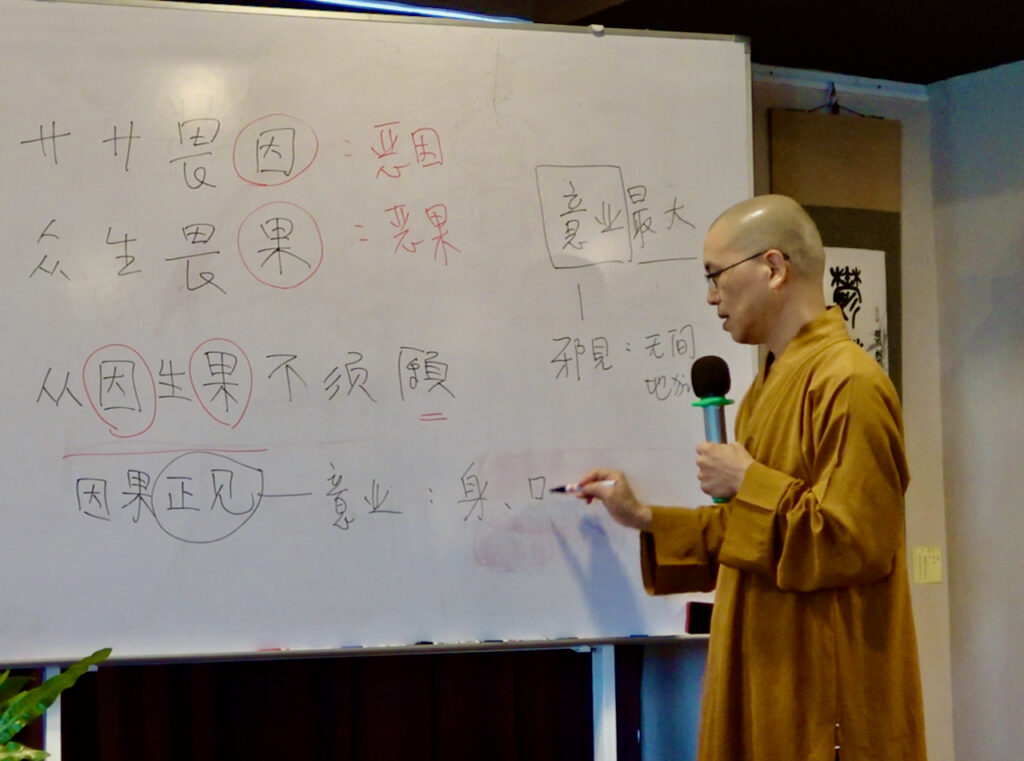 艹艹畏因：恶因
众生畏果：恶果
从因生果不须願
因果正见—意业：身、口
意业最大
邪見：无间
地狱